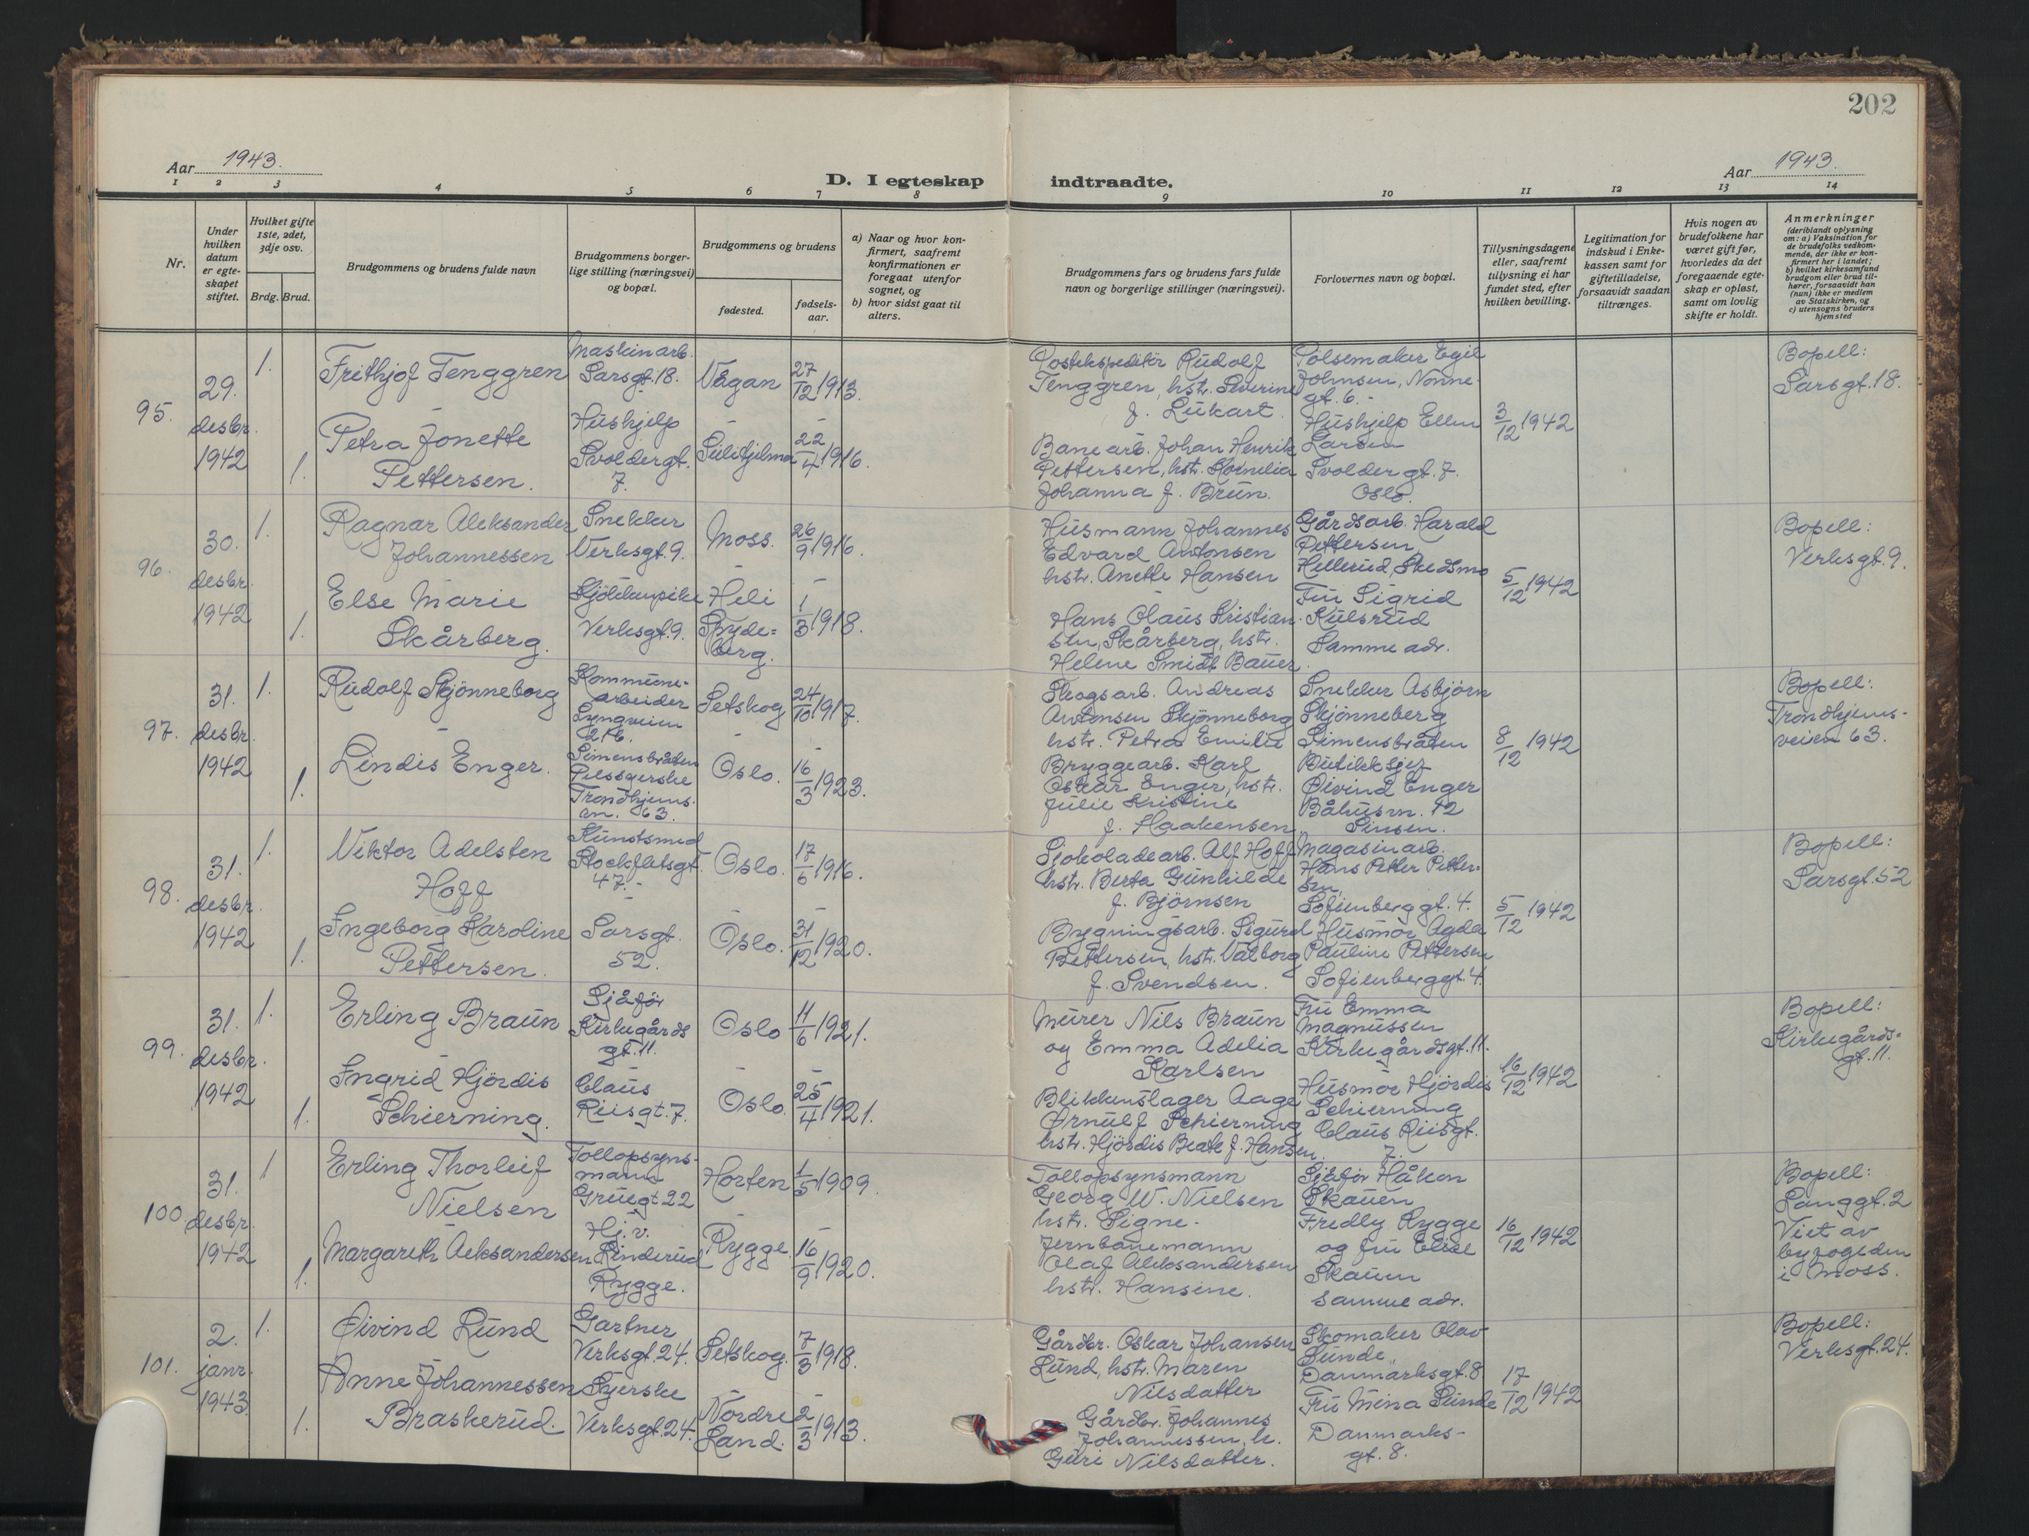 202
Aar 1943.
D. I egteskap indtraadte.
Aar 1943.
1 2 3 4 5 6 7 8 9 10 11 12 13 14
Nr.
Under
hvilken
datum
er egte-
skapet
stiftet.
Hvilket gifte
1ste, 2det,
3dje osv.
Brdg. Brud.
Brudgommens og brudens fulde navn
Brudgommens borger-
lige stilling (næringsvei)
og bopæl.
Brudgommens og brudens
fødested.
fødsels-
aar.
a) Naar og hvor kon-
firmert, saafremt
konfirmationen er
foregaat utenfor
sognet, og
b) hvor sidst gaat til
alters.
Brudgommens fars og brudens fars fulde
navn og borgerlige stillinger (næringsvei).
Forlovernes navn og bopæl.
Tillysningsdagene
eller, saafremt
tillysning ei har
fundet sted, efter
hvilken bevilling.
Legitimation for
indskud i Enke-
kassen samt for
giftetilladelse,
forsaavidt saadan
tiltrænges.
Hvis nogen av
brudefolkene har
været gift før,
hvorledes da det
foregaaende egte-
skap er opløst,
samt om lovlig
skifte er holdt.
Anmerkninger
(deriblandt oplysning
om: a) Vaksination for
de brudefolks vedkom-
mende, der ikke er kon-
firmert her i landet;
b) hvilket kirkesamfund
brudgom eller brud til-
hører, forsaavidt han
(hun) ikke er medlem
av Statskirken, og
c) utensogns bruders
hjemsted
95.
29.
desbr.
1942
1.
Frithjof Tenggren
Maskinarb.
Sarsgt. 18.
Vågan
27/12 1913.
Postekspeditør Rudolf
Tenggren, hstr. Severine
f. Lukart.
Pølsemaker Egil
Johnsen, Nonne-
gt. 6.
3/12 1942
Bopell:
Sarsgt. 18.
1.
Petra Jonette
Pettersen.
Hushjelp
Svoldergt.
7.
Sulitjelma
22/4 1916.
Banearb. Johan Henrik
Pettersen, hstr. Kornelia
Johanna f. Brun.
Hushjelp Ellen
Larsen
Svoldergt. 7.
Oslo.
96.
30.
desbr.
1942
1.
Ragnar Aleksander
Johannessen
Snekker
Verksgt. 9.
Moss.
26/9 1916.
Husmann Johannes
Edvard Antonsen
hstr. Anette Hansen
Gårdsarb. Harald
Pettersen
Hellerud, Skedsmo
5/12 1942
Bopell:
Verksgt. 9.
1.
Else Marie
Skårberg.
Kjøkkenpike
Verksgt. 9.
Heli
Spyde-
berg.
1/3 1918.
Hans Olaus Kristian-
sen, Skårberg, hstr.
Helene Smidt Bauer.
Fru Sigrid
Kulsrud
Samme adr.
97.
31.
desbr.
1942
1.
Rudolf Skjønneborg
Kommune-
arbeider
Lyngveien
21b.
Simensbråten
Setskog
24/10 1917.
Skogsarb. Andreas
Antonsen Skjønneborg
hstr. Petra Emilie
Snekker Asbjørn
Skjønneberg
Simensbråten
8/12 1942
Bopell:
Trondhjems-
veien 63.
1.
Lindis Enger.
Pelssyerske
Trondhjems-
vn. 63.
Oslo.
16/3 1923.
Bryggearb. Karl
Oskar Enger, hstr.
Julie Kristine
f. Haakensen
Butikksjef
Øivind Enger
Båhusvn. 12
Sinsen.
98.
31.
desbr.
1942
1.
Viktor Adelsten
Hoff
Kunstsmed
Stockfletsgt.
47.
Oslo.
17/6 1916.
Sjokoladearb. Alf Hoff
hstr. Berta Gunhilde
f. Bjørnsen
Magasinarb.
Hans Petter Petter-
sen,
Sofienberggt. 4.
5/12 1942
Bopell:
Sarsgt. 52
1.
Ingeborg Karoline
Pettersen.
Sarsgt.
52.
Oslo.
31/12 1920.
Bygningsarb. Sigurd
Pettersen, hstr. Valborg
f. Svendsen.
Husmor Agda
Pauline Pettersen
Sofienberggt. 4.
99.
31.
desbr.
1942
1.
Erling Braun
Sjåfør
Kirkegårds
gt. 11.
Oslo
11/6 1921.
Murer Nils Braun
og Emma Adelia
Karlsen
Fru Emma
Magnussen
Kirkegårdsgt. 11.
16/12 1942
Bopell:
Kirkegårds-
gt. 11.
1.
Ingrid Hjørdis
Schierning.
Claus
Riisgt. 7.
Oslo.
25/4 1921.
Blikkenslager Aage
Ørnulf Schierning
hstr. Hjørdis Beate f. Hansen.
Husmor Hjørdis
Schierning
Claus Riisgt.
7.
100
31.
desbr.
1942
1
Erling Thorleif
Nielsen
Tollopsyns-
mann
Gruegt 22
Horten
1/5 1909.
Tollopsynsmann
Georg W. Nielsen
hstr. Signe.
Sjåfør Håkon
Skauen
Fredly Rygge
16/12 1942
Bopell:
Langgt. 2
Viet av
byfogeden
i Moss.
1.
Margareth Aleksandersen
Hj. v.
Kinderud
Rygge.
Rygge
16/9 1920.
Jernbanemann
Olaf Aleksandersen
hstr. Hansine.
og fru Elise
Skauen
samme adr.
101.
2.
janr.
1943.
1.
Øivind Lund
Gartner
Verksgt. 24.
Setskog.
7/3 1918.
Gårdbr. Oskar Johansen
Lund, hstr. Maren
Nilsdatter
Skomaker Olav
Sunde
Danmarksgt. 8
17/12 1942
Bopell:
Verksgt. 24.
1.
Anne Johannessen
Braskerud.
Syerske
Verksgt. 24.
Nordre
Land.
2/3 1913.
Gårdbr. Johannes
Johannessen, h.
Guri Nilsdatter.
Fru Mina Sunde
Danmarks-
gt. 8.